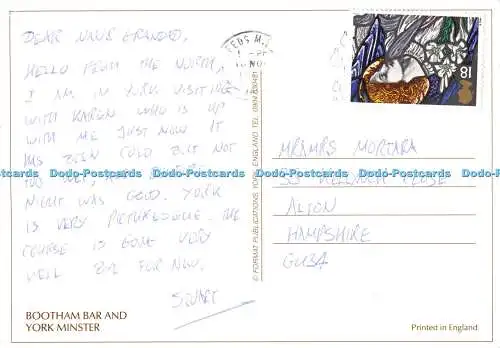 DEAR NAN & GRANDAD,
HELLO FROM THE NORTH,
I AM IN YORK VISITING
WITH KAREN WHO IS UP
WITH ME JUST NOW IT
HAS BEEN COLD BUT NOT
TOO
NIGHT WAS GOLD. YORK
IS VERY PICTURESQUE. THE
COURSE IS GOING VERY
WELL BYE FOR NOW.
STUART
BOOTHAM BAR AND
YORK MINSTER
© FORMAT PUBLICATIONS YORK ENGLAND TEL.
EEDS
NO
18
MR & MRS MORTARA
CLOSE
ALTON
HAMPSHIRE
GU34
Printed in England
Dodo-Postcards Dodo-Postcards Dodo-Postcards Dodo-Postcards Dodo-Postcards Dodo-Postcards